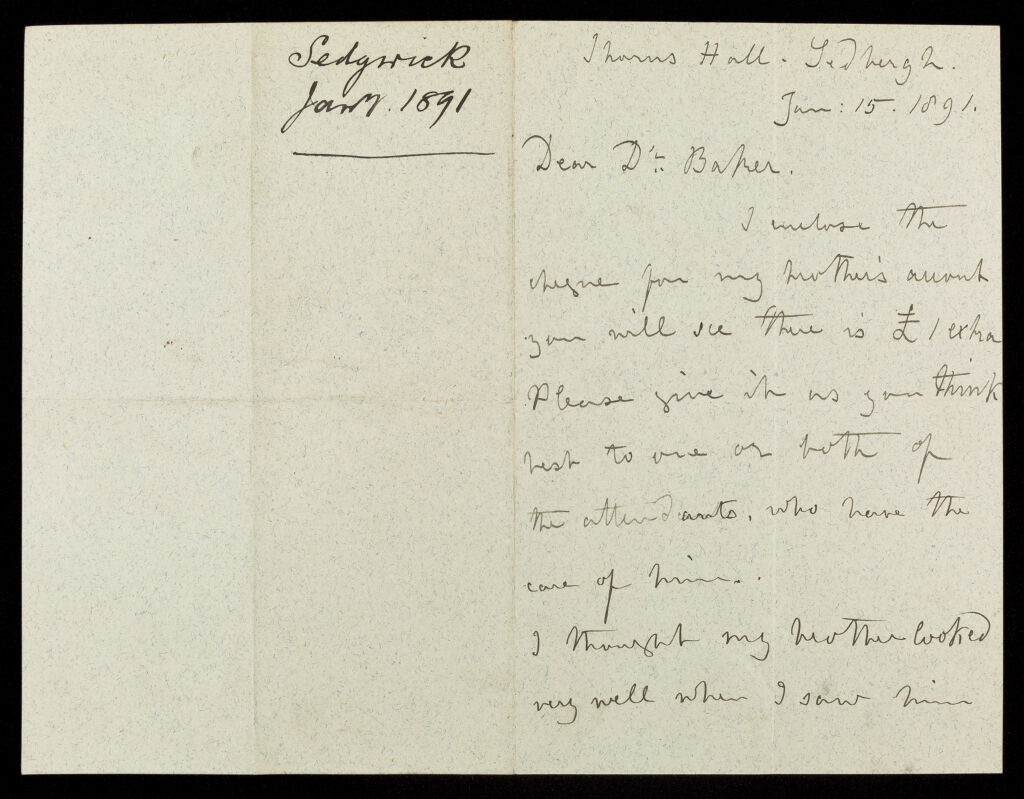 Sedgwick
Jany. 1891
Thorns Hall - Sedbergh.
Jan: 15. 1891.
Dear Dr. Baker.
I enclose the
cheque for my brother's account
you will see there is £1 extra
Please give it as you think
best to one or both of
the attendants, who have the
care of him..
I thought my brother looked
very well when I saw him